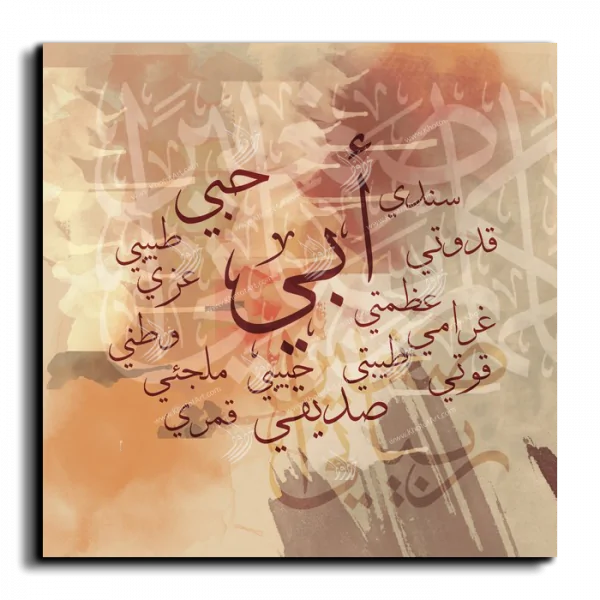 حبي
سندي
أبي
قدوتي
طبيبي
عزي
عظمتي
غرامي
وطني
طيبتي
قوتي
حبيبي
ملجئي
صديقي
قمري